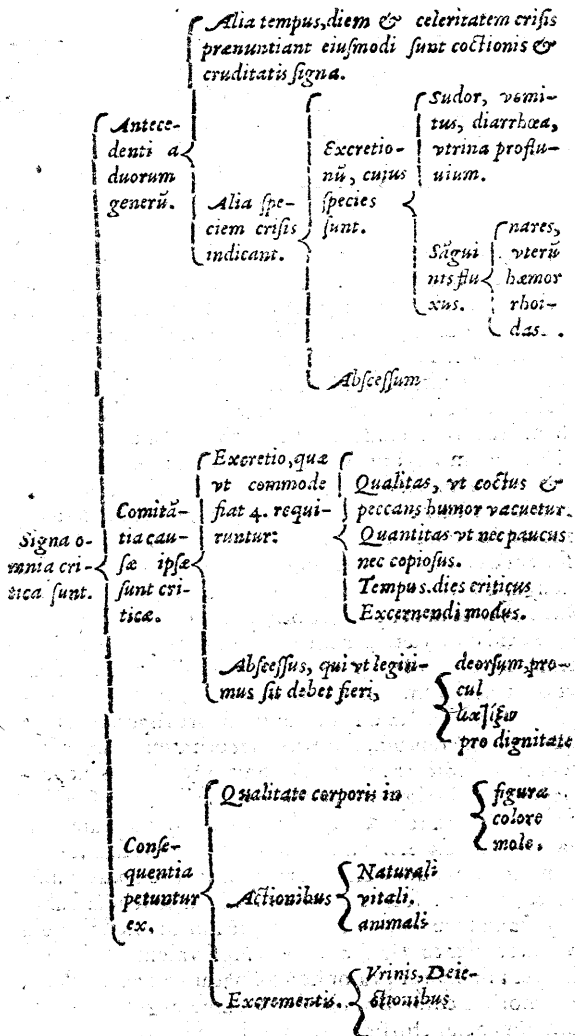 Alia tempus, diem & celeritatem crisis
prænuntiant eiusmodi sunt coctionis &
cruditatis signa.
Antece-
denti a
duorum
generũ.
Alia spe-
ciem crisis
indicant.
Excretio-
nũ, cuius
species
sunt.
Sudor, vomi-
tus, diarrhœa,
vtrina proflu-
uium.
Sãgui
nis flu
xus.
nares,
vterũ
hæmor
rhoi-
das.
Abscessum
Signa o-
mnia cri-
tica sunt.
Comitã-
tia cau-
sæ ipsæ
sunt cri-
ticæ.
Excretio, quæ
vt commode
fiat 4. requi-
runtur:
Qualitas, vt coctus &
peccans humor vacuetur.
Quantitas vt nec paucus
nec copiosus.
Tempus. dies criticus
Excernendi modus.
Abscessus, qui vt legiti-
mus sit debet fieri,
deorsum, pro-
cul
pro dignitate
Conse-
quentia
petuntur
ex.
Qualitate corporis in
figura
colore
mole.
Actionibus
Naturali
vitali,
animali
Excrementis.
Vrinis, Deie-
ctionibus